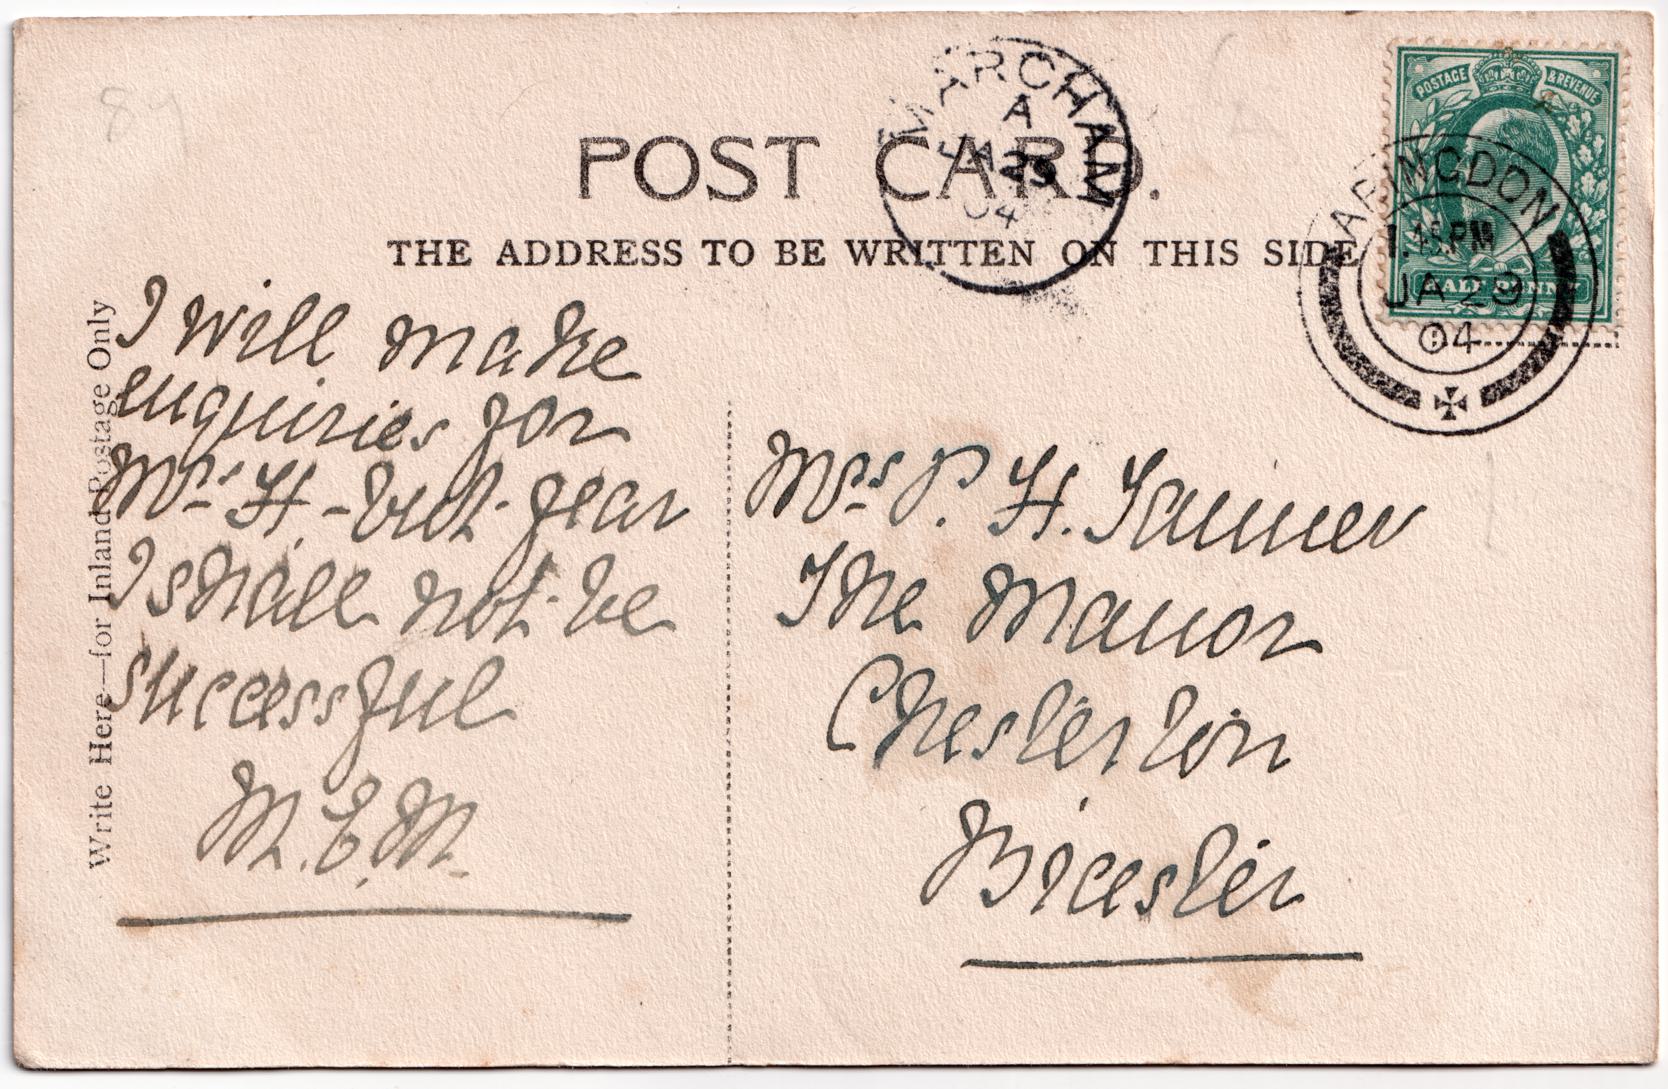 POST CARD.
THE ADDRESS TO BE WRITTEN ON THIS SIDE
MARCHAM
A
JA 29
04
POSTAGE & REVENUE
HALF PENNY
ABINGDON
1.45 PM
JA 29
04
Write Here—for Inland Postage Only
I will make
enquiries for
Mrs H. - but fear
I shall not be
successful
M.E.M.
Mrs P. H. Tanner
The Manor
Chesterton
Bicester